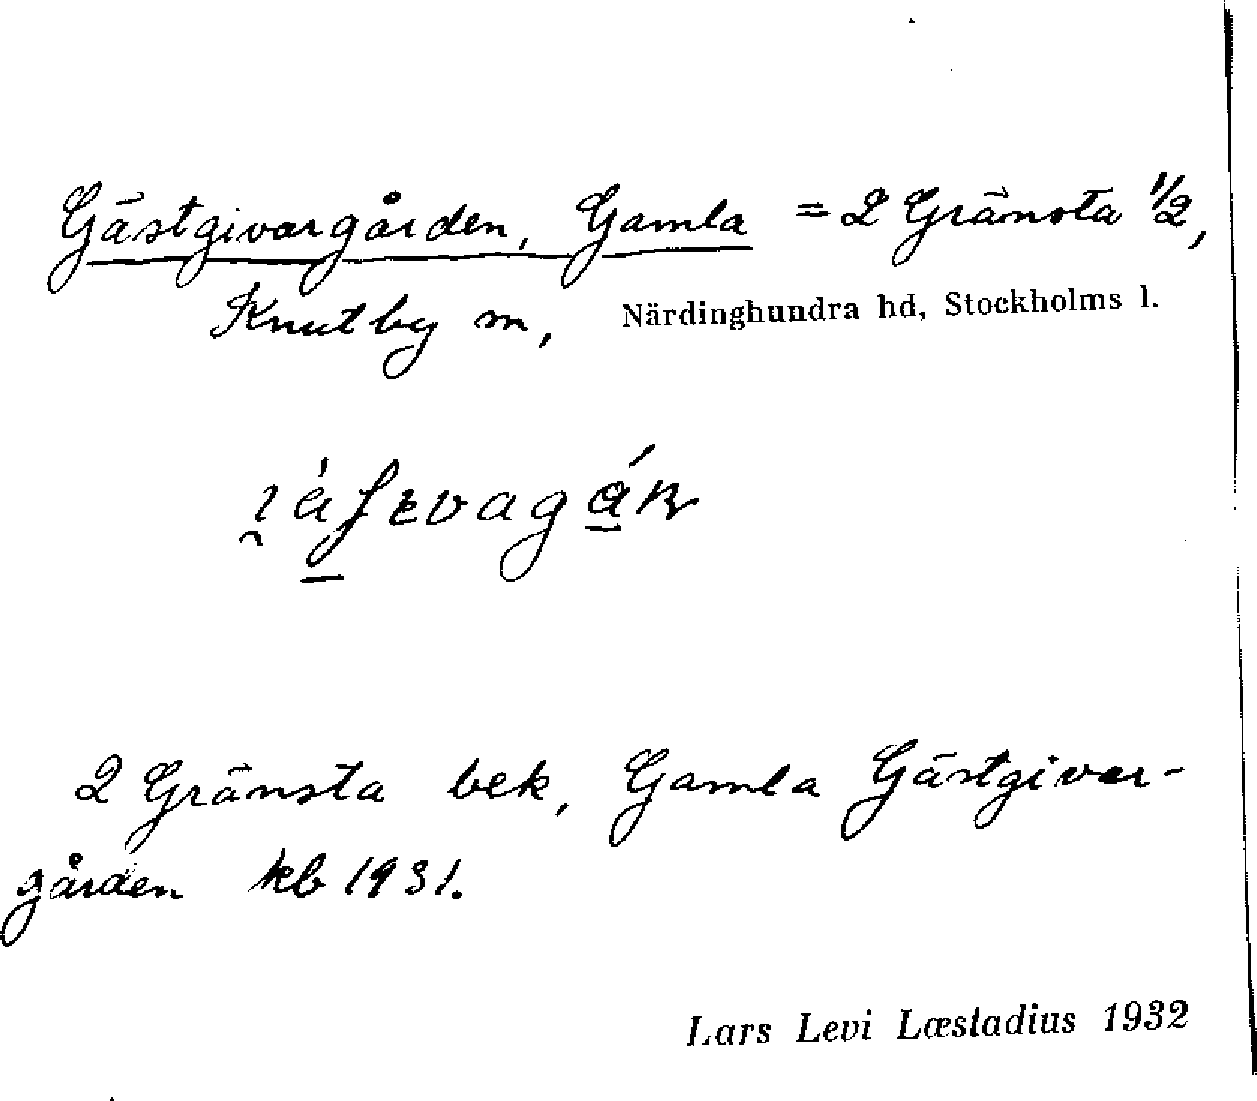 Gästgivargården, Gamla = 2 Gränsta 1/2,
Knutby sn, Närdinghundra hd, Stockholms l.
2 Gränsta bek, Gamla Gästgivar-
gården kb 1931.
Lars Levi Læstadius 1932